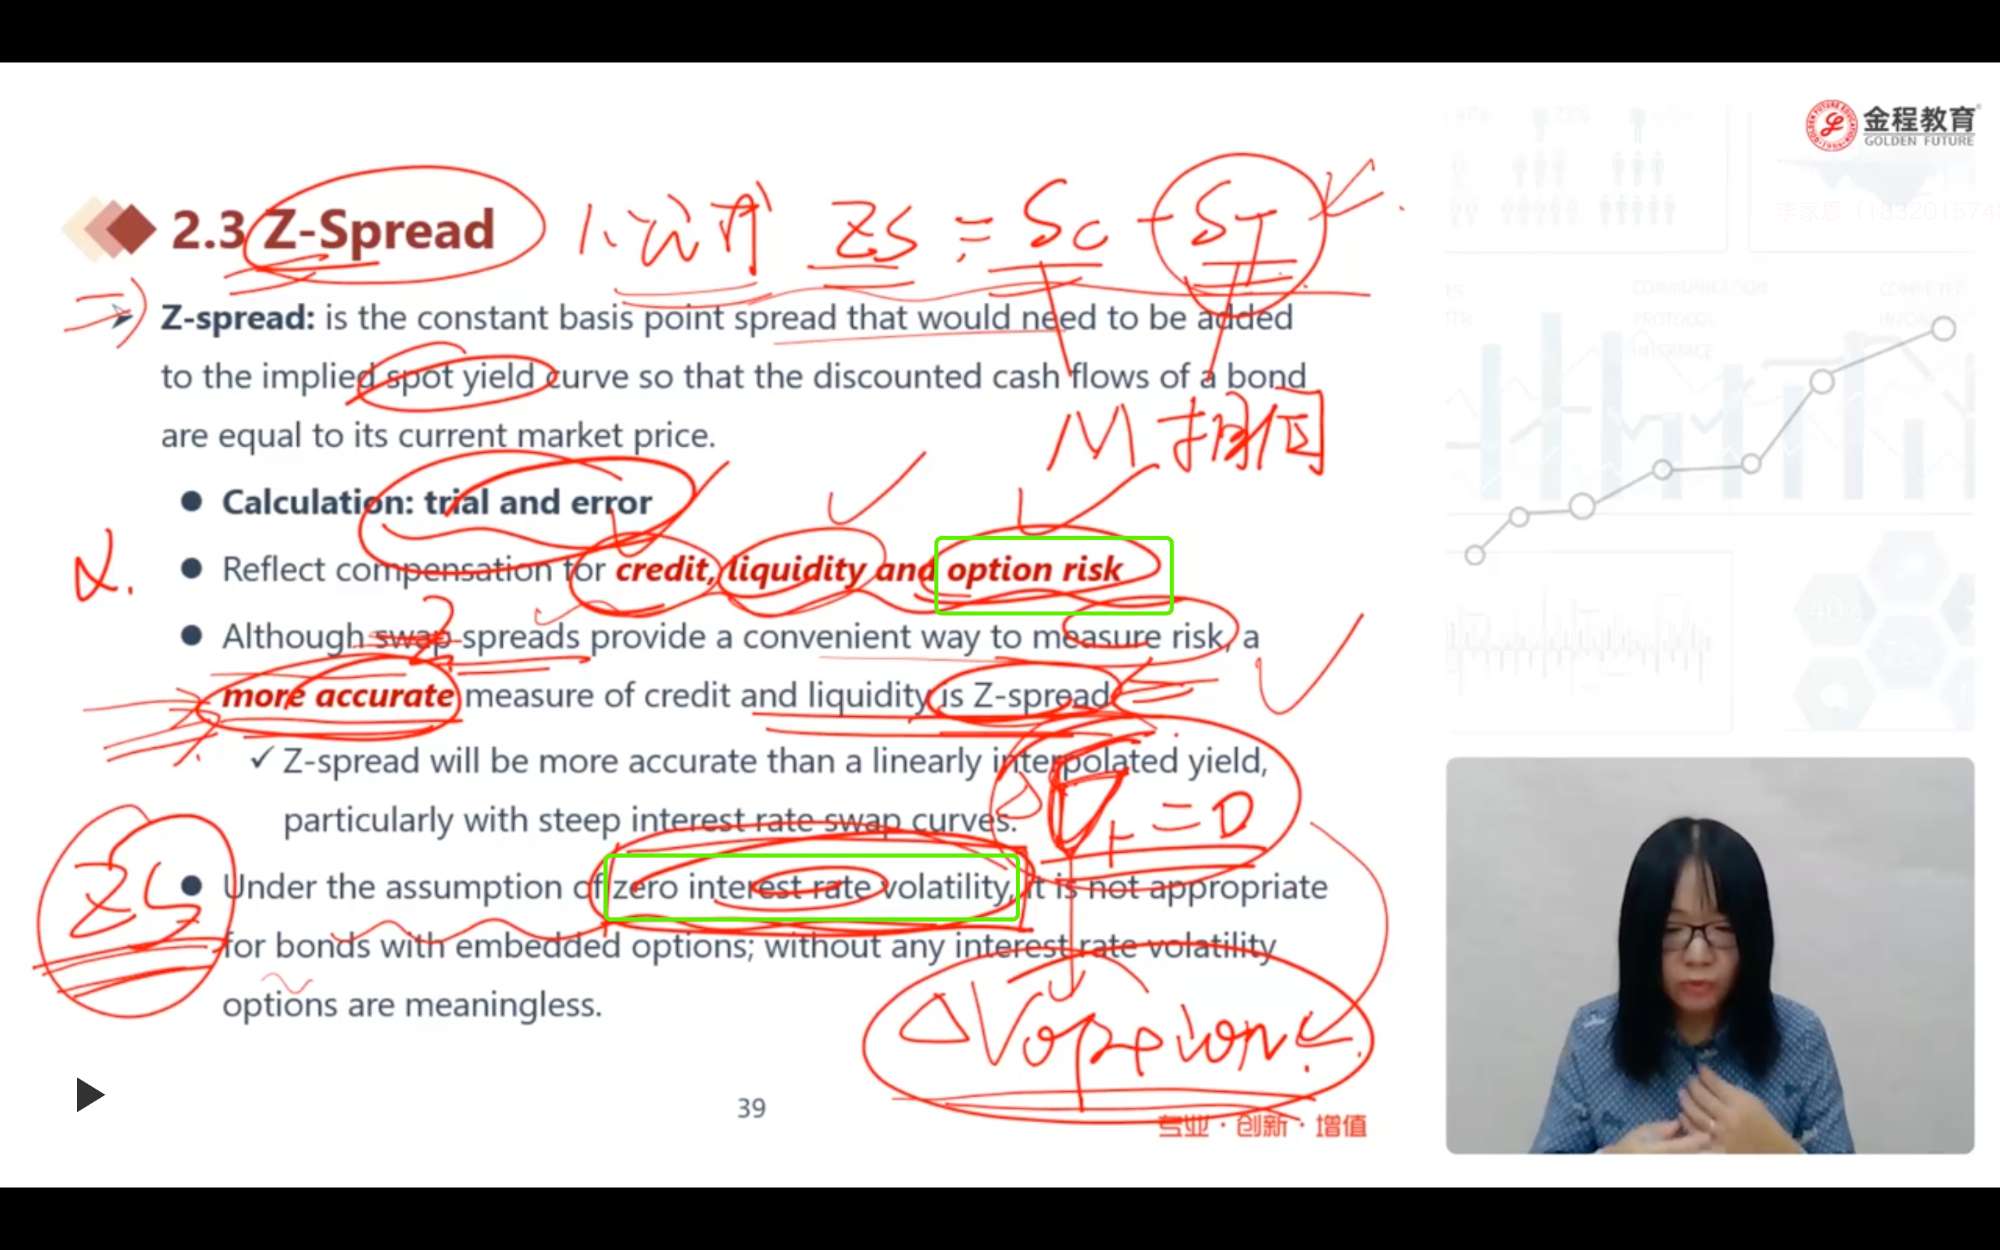 金程教育
GOLDEN FUTURE
2.3 Z-Spread
ZS = Sc - ST
Z-spread: is the constant basis point spread that would need to be added
to the implied spot yield curve so that the discounted cash flows of a bond
are equal to its current market price.
M
Calculation: trial and error
2.
Reflect compensation for credit, liquidity and option risk
Z
Although swap spreads provide a convenient way to measure risk, a
more accurate measure of credit and liquidity is Z-spread
✓ Z-spread will be more accurate than a linearly interpolated yield,
particularly with steep interest rate swap curves.
= 0
ZS
Under the assumption of zero interest rate volatility, it is not appropriate
for bonds with embedded options; without any interest rate volatility
options are meaningless.
ΔVoption
39
专业·创新·增值